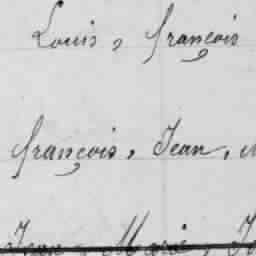 Louis, françois
françois, Jean,
Jean, Marie,